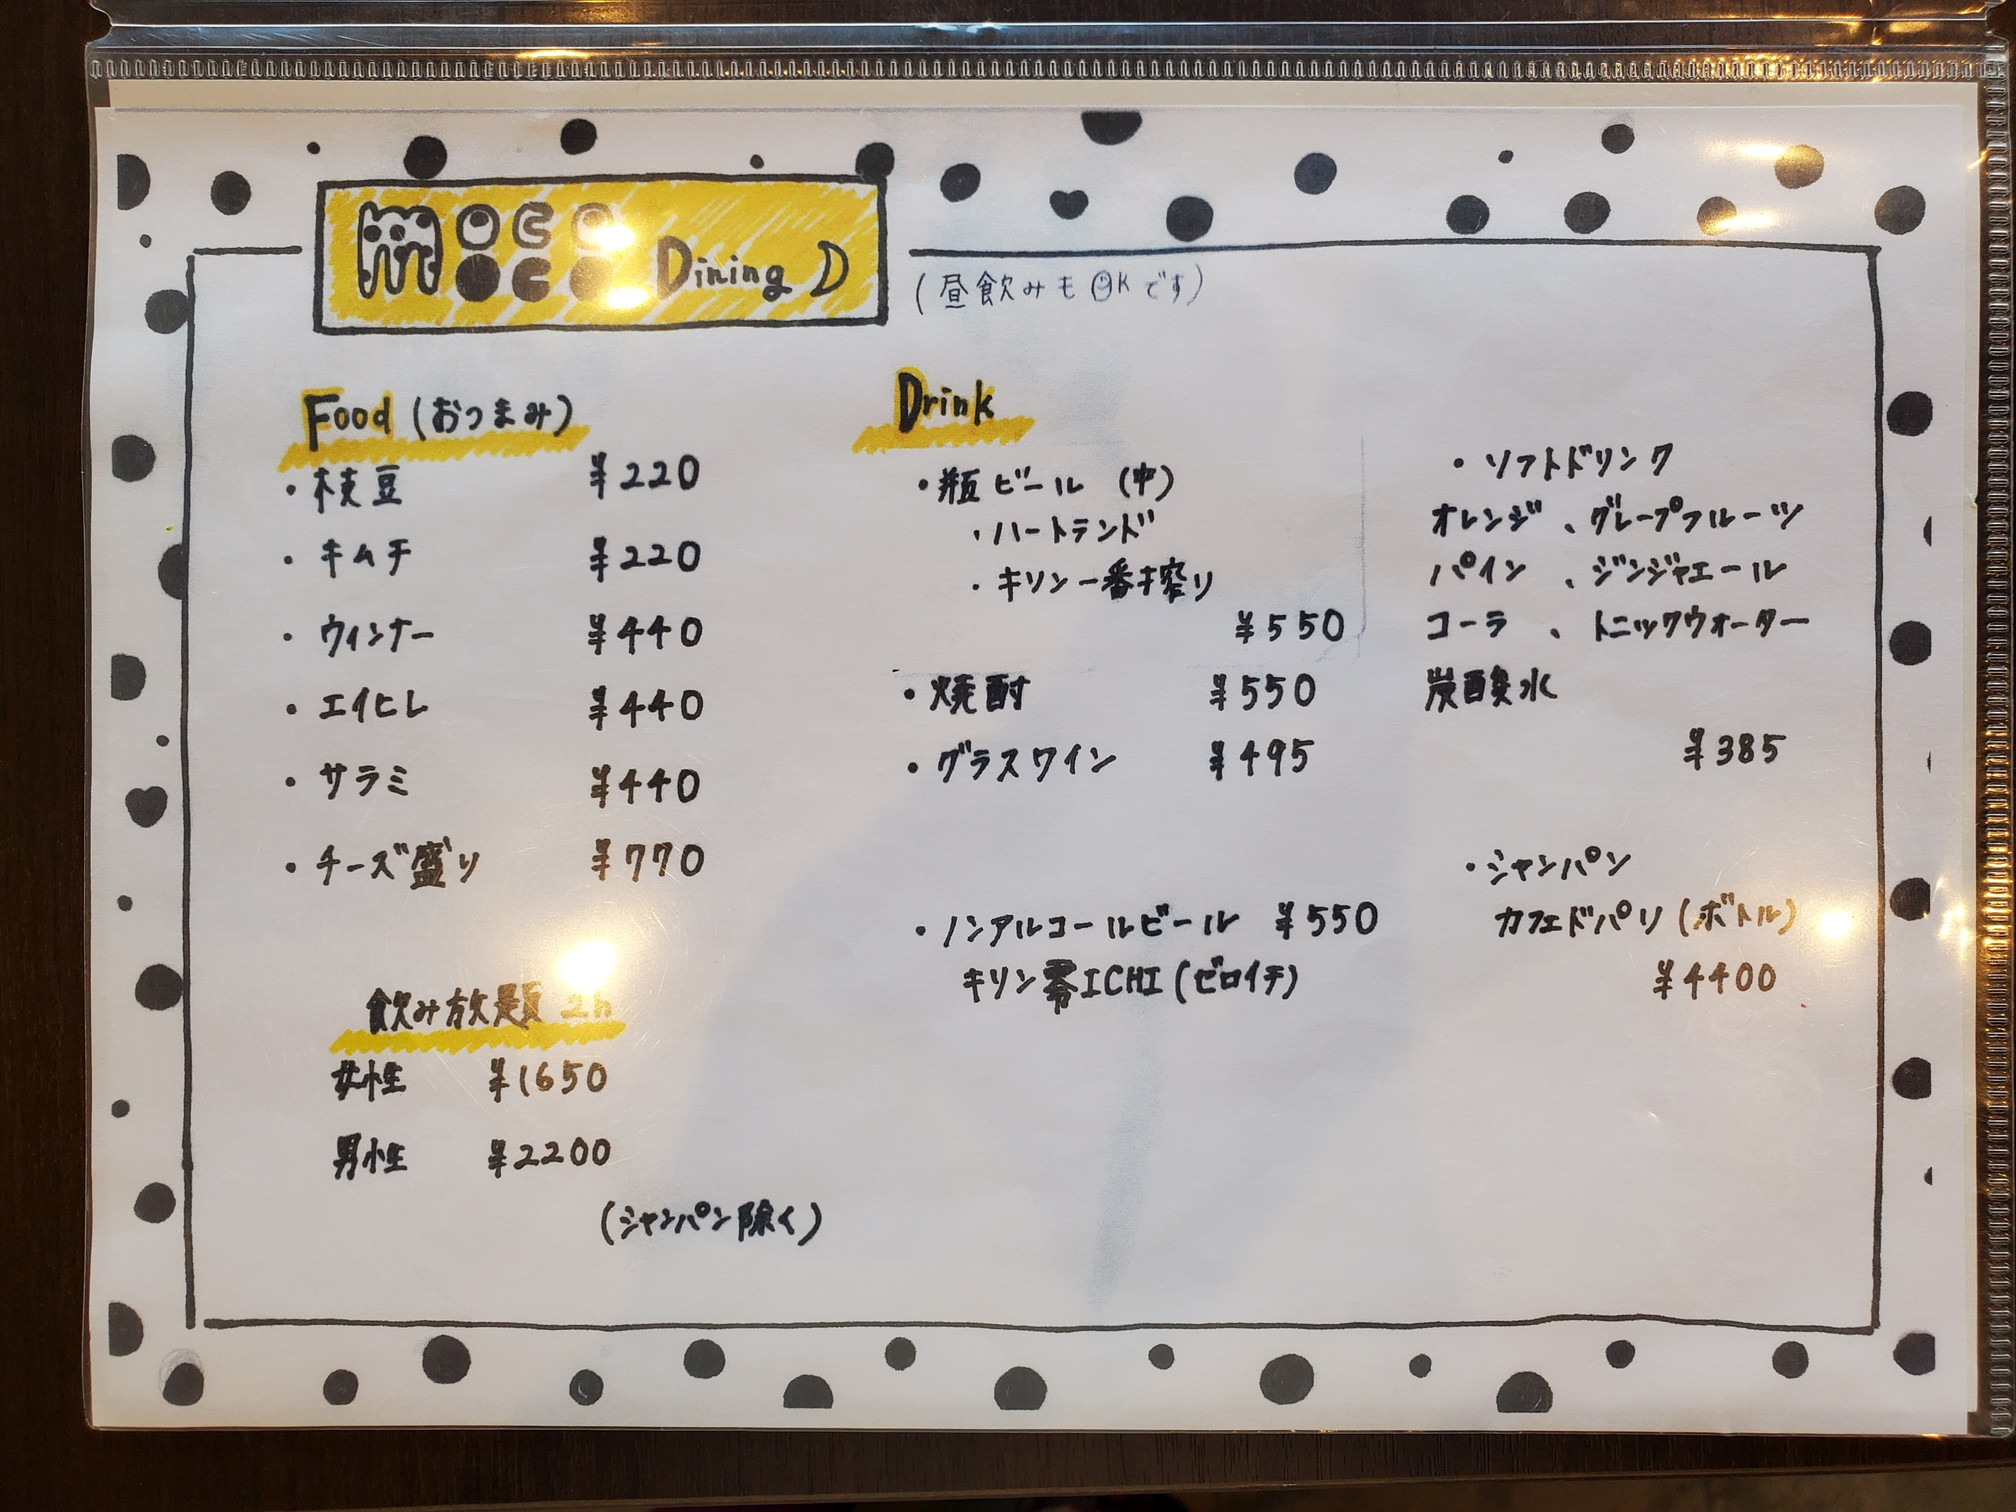 moco moco Dining
(昼飲みもOKです)
Food (おつまみ)
・枝豆 ¥220
・キムチ ¥220
・ウィンナー ¥440
・エイヒレ ¥440
・サラミ ¥440
・チーズ盛り ¥770
飲み放題 2h
女性 ¥1650
男性 ¥2200
(シャンパン除く)
Drink
・瓶ビール (中)
・ハートランド
・キリン一番搾り
¥550
・焼酎 ¥550
・グラスワイン ¥495
・ノンアルコールビール ¥550
キリン零ICHI (ゼロイチ)
・ソフトドリンク
オレンジ、グレープフルーツ
パイン、ジンジャエール
コーラ、トニックウォーター
炭酸水
¥385
・シャンパン
カフェドパリ (ボトル)
¥4400